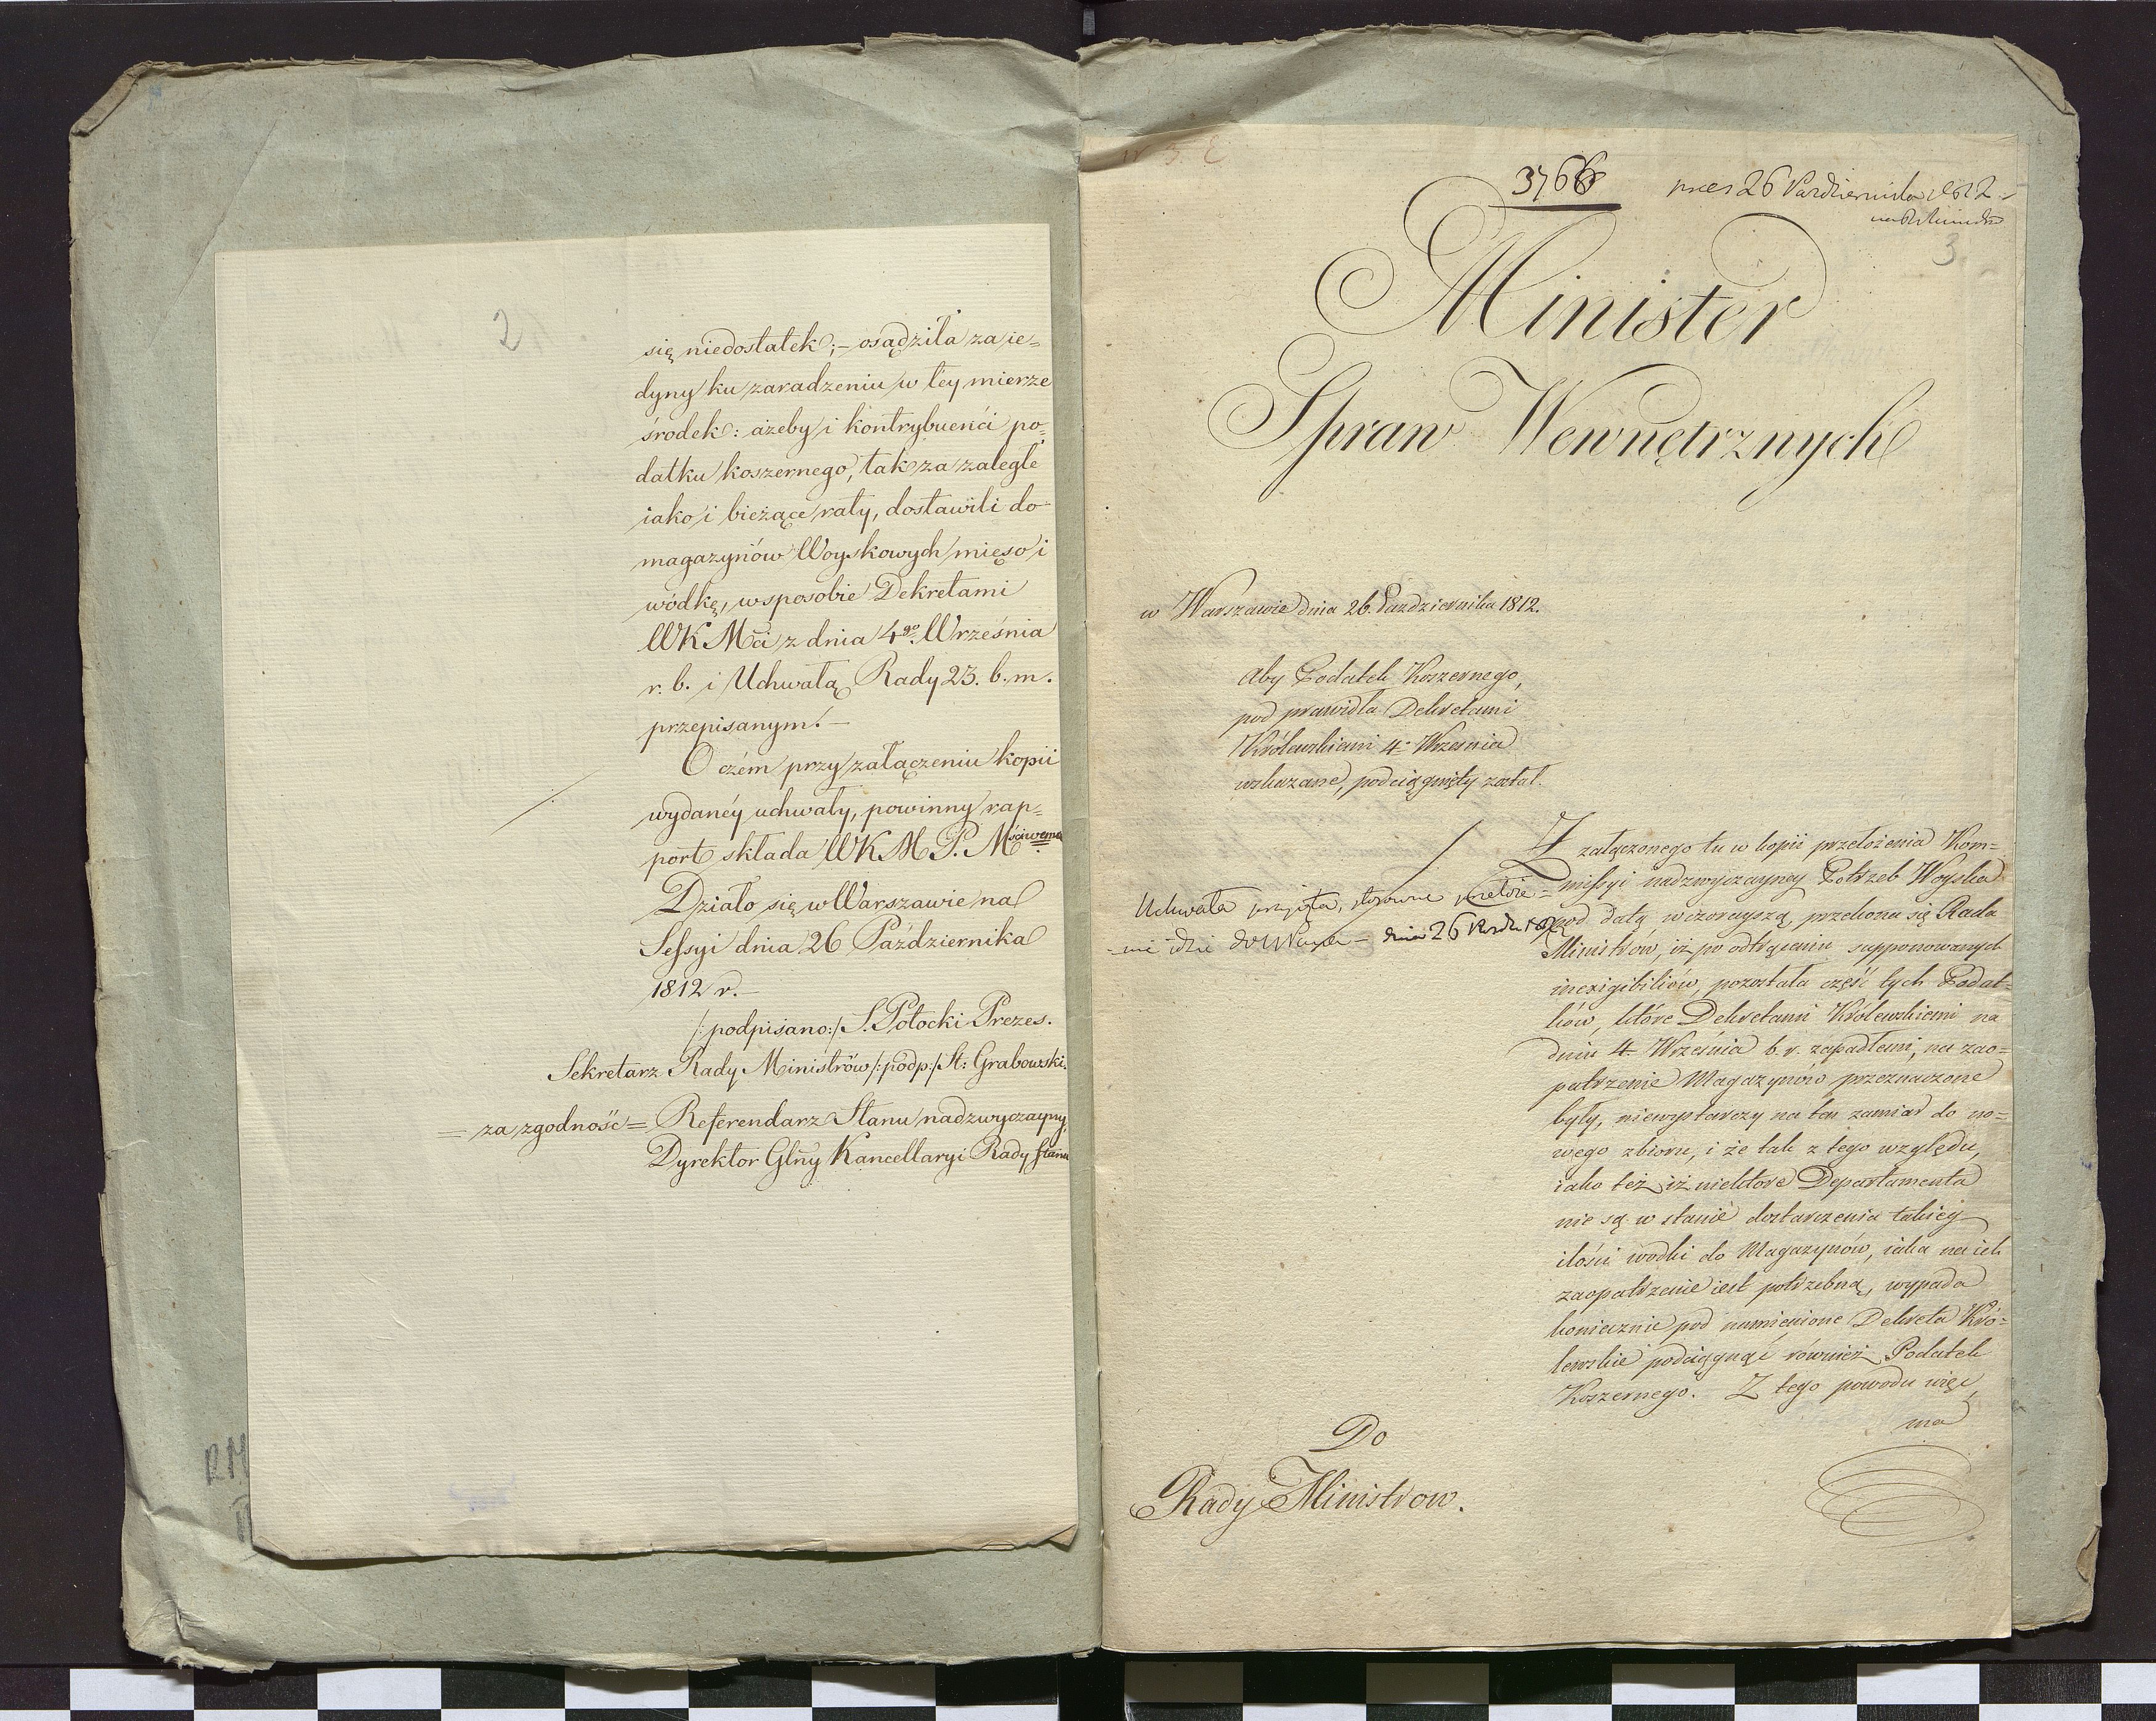 2
się niedostatek; – osądziła za ie=
dyny ku zaradzeniu w tey mierze
środek: ażeby i kontrybuenci po=
datku koszernego, tak za zaległe
iako i bieżące raty, dostawili do
magazynów Woyskowych mięso i
wódkę, w sposobie Dekretami
WKMci z dnia 4go Września
r. b. i Uchwałą Rady 23. b. m.
przepisanym. –
O czém przy załączeniu kopii
wydanéy uchwały, powinny rap=
port składa WKM P. Mściwemu
Działo się w Warszawie na
Sessyi dnia 26 Października
1812 r. –
/: podpisano :/ S. Potocki Prezes.
Sekretarz Rady Ministrów /: podp :/ St: Grabowski.
= za zgodność = Referendarz Stanu nadzwyczayny,
Dyrektor Glny Kancellaryi Rady Stanu
RM
3766
26 Października 1812 –
3
Minister
Spraw Wewnętrznych
w Warszawie dnia 26. Października 1812.
Aby Podatek Koszernego,
pod prawidła Dekretami
Królewskiemi 4. Września
wskazane, podciągnięty został.
Uchwała przyięta, stosowne
dnia 26
Z załączonego tu w kopii przełożenia Kom=
missyi nadzwyczayney Potrzeb Woyska
pod datą wczorayszą, przekona się Rada
Ministrów, iż po odtrąceniu supponowanych
inexigibiliów, pozostała część tych Podat=
ków, które Dekretami Królewskiemi na
dniu 4. Września b. r. zapadłemi, na zao=
patrzenie Magazynów przeznaczone
były, niewystarczy na ten zamiar do no=
wego zbioru, i że tak z tego względu,
iako też iż niektóre Departamenta
nie są w stanie dostarczenia takiey
ilości wódki do Magazynów, iaka na ich
zaopatrzenie iest potrzebną, wypada
koniecznie pod namienione Dekreta Kró=
lewskie podciągnąć również Podatek
Koszernego. Z tego powodu więc,
ma
Do
Rady Ministrow.